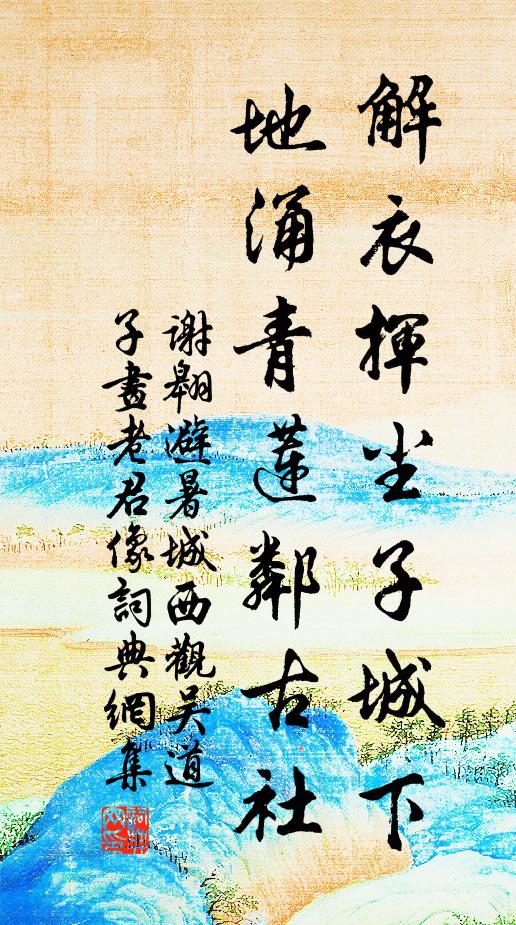 解衣揮尘子城下
地涌青蓮鄰古社
謝翱避暑城西觀吴道
子畫老君像詞典網集